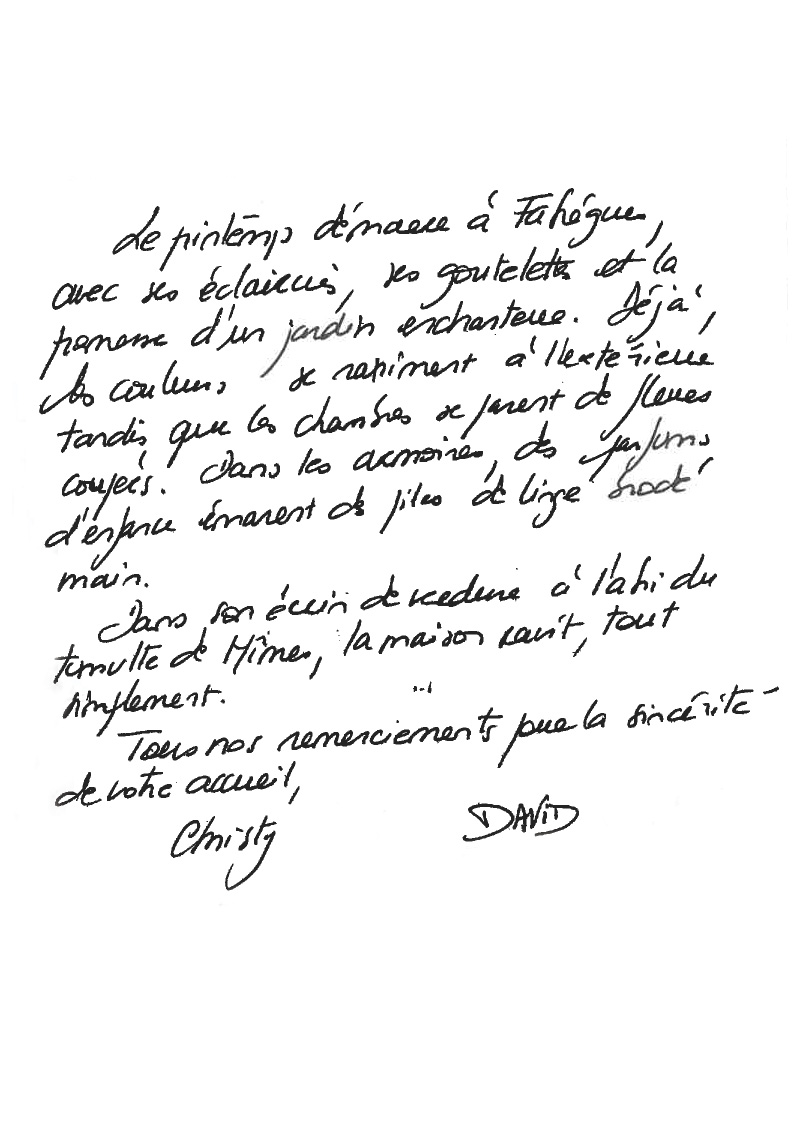 Le printemps démarre à Fahègues,
avec ses éclaircies, ses goutelettes et la
promesse d'un jardin enchanteur. Déjà,
les couleurs se raniment à l'extérieur
tandis que les chambres se parent de fleurs
coupées. Dans les armoires, des parfums
d'enfance émanent de piles de linge brodé
main.
Dans son écrin de verdure à l'abri du
tumulte de Nîmes, la maison sourit, tout
simplement.
Tous nos remerciements pour la sincérité
de votre accueil,
Christy DAVID